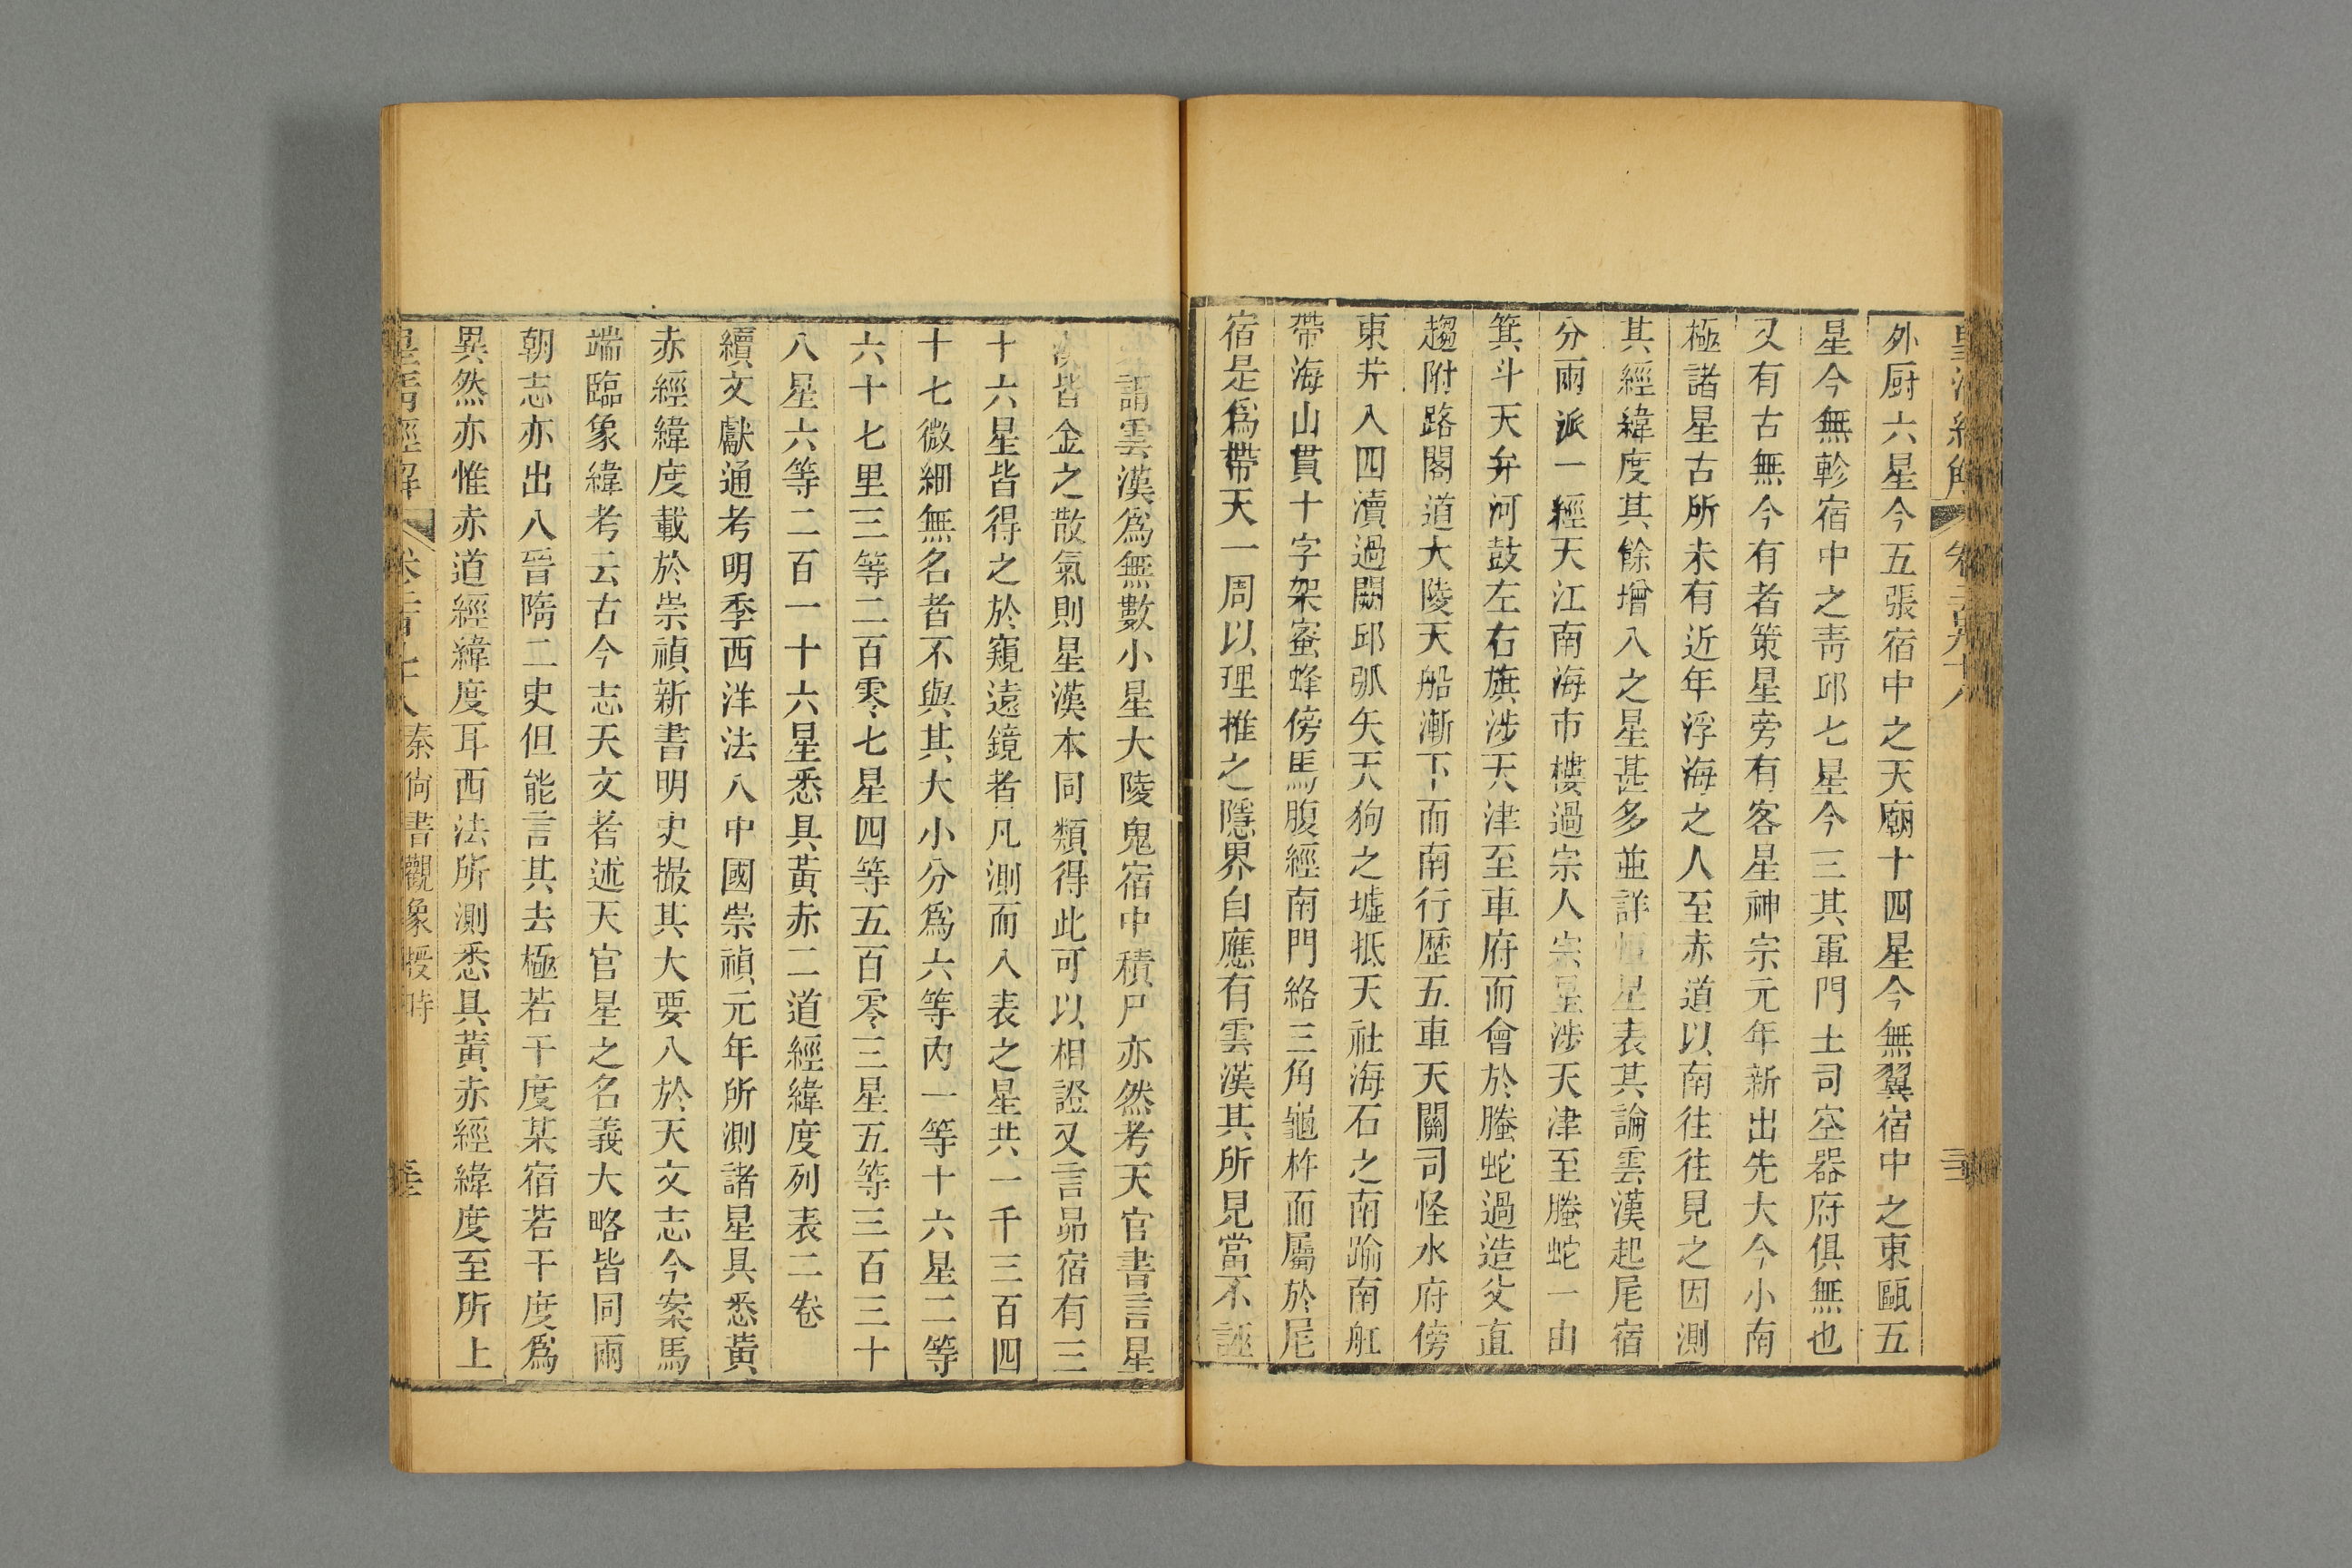 外厨六星今五張宿中之天廟十四星今無翼宿中之東甌五
星今無軫宿中之青邱七星今三其軍門土司空器府俱無也
又有古無今有者策星旁有客星神宗元年新出先大今小南
極諸星古所未有近年浮海之人至赤道以南往往見之因測
其經緯度其餘增入之星甚多並詳星表其論雲漢起尾宿
分兩派一經天江南海市樓過宗人宗星涉天津至螣蛇一由
箕斗天弁河鼓左右旗涉天津至車府而會於螣蛇過造父直
趨附路閣道大陵天船漸下而南行歴五車天關司怪水府傍
東井入四瀆過闕邱弧矢天狗之墟抵天社海石之南踰南舡
帶海山貫十字架蜜蜂傍馬腹經南門絡三角龜杵而屬於尾
宿是爲帶天一周以理推之隱界自應有雲漢其所見當不誣
謂雲漢爲無數小星大陵鬼宿中積尸亦然考天官書言星
漢皆金之散氣則星漢本同類得此可以相證又言昴宿有三
十六星皆得之於窺遠鏡者凡測而入表之星共一千三百四
十七微細無名者不與其大小分爲六等內一等十六星二等
六十七里三等二百零七星四等五百零三星五等三百三十
八星六等二百一十六星悉具黃赤二道經緯度列表二卷
續文獻通考明季西洋法入中國崇禎元年所測諸星具悉黃
赤經緯度載於崇禎新書明史撮其大要入於天文志今案馬
端臨象緯考云古今志天文者述天官星之名義大略皆同兩
朝志亦出八晉隋二史但能言其去極若干度某宿若干度爲
異然亦惟赤道經緯度耳西法所測悉具黃赤經緯度至所上
皇清經解 秦尙書觀象授時